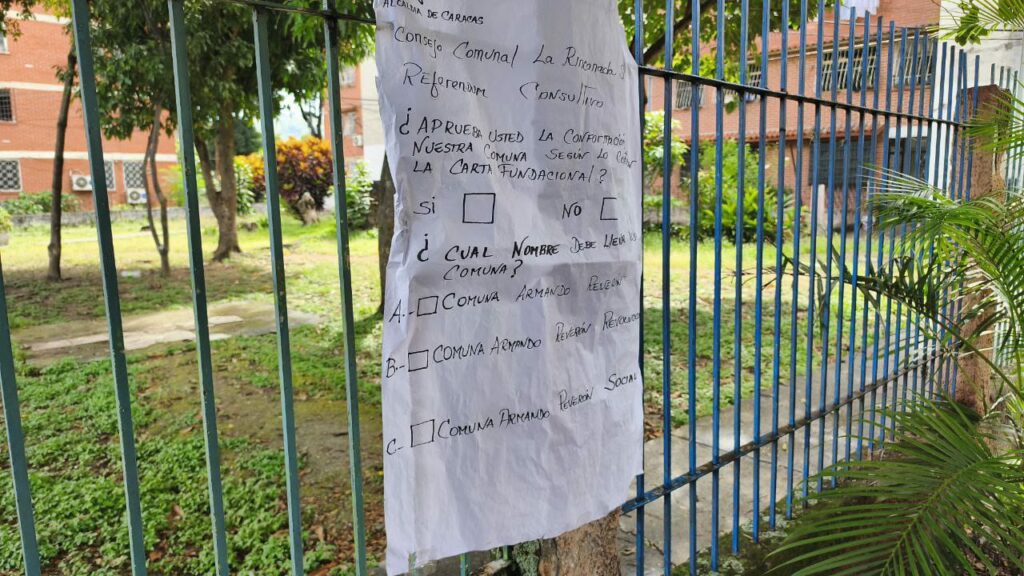 ALCALDIA DE CARACAS
CONSEJO COMUNAL LA RINCONADA
REFERENDUM CONSULTIVO
¿ APRUEBA USTED LA CONFORMACIÓN
NUESTRA COMUNA SEGÚN LO
LA CARTA FUNDACIONAL?
SI NO
¿ CUAL NOMBRE DEBE LLEVAR
COMUNA?
A.- COMUNA ARMANDO REVERÓN
B.- COMUNA ARMANDO REVERÓN
C.- COMUNA ARMANDO REVERÓN SOCIAL